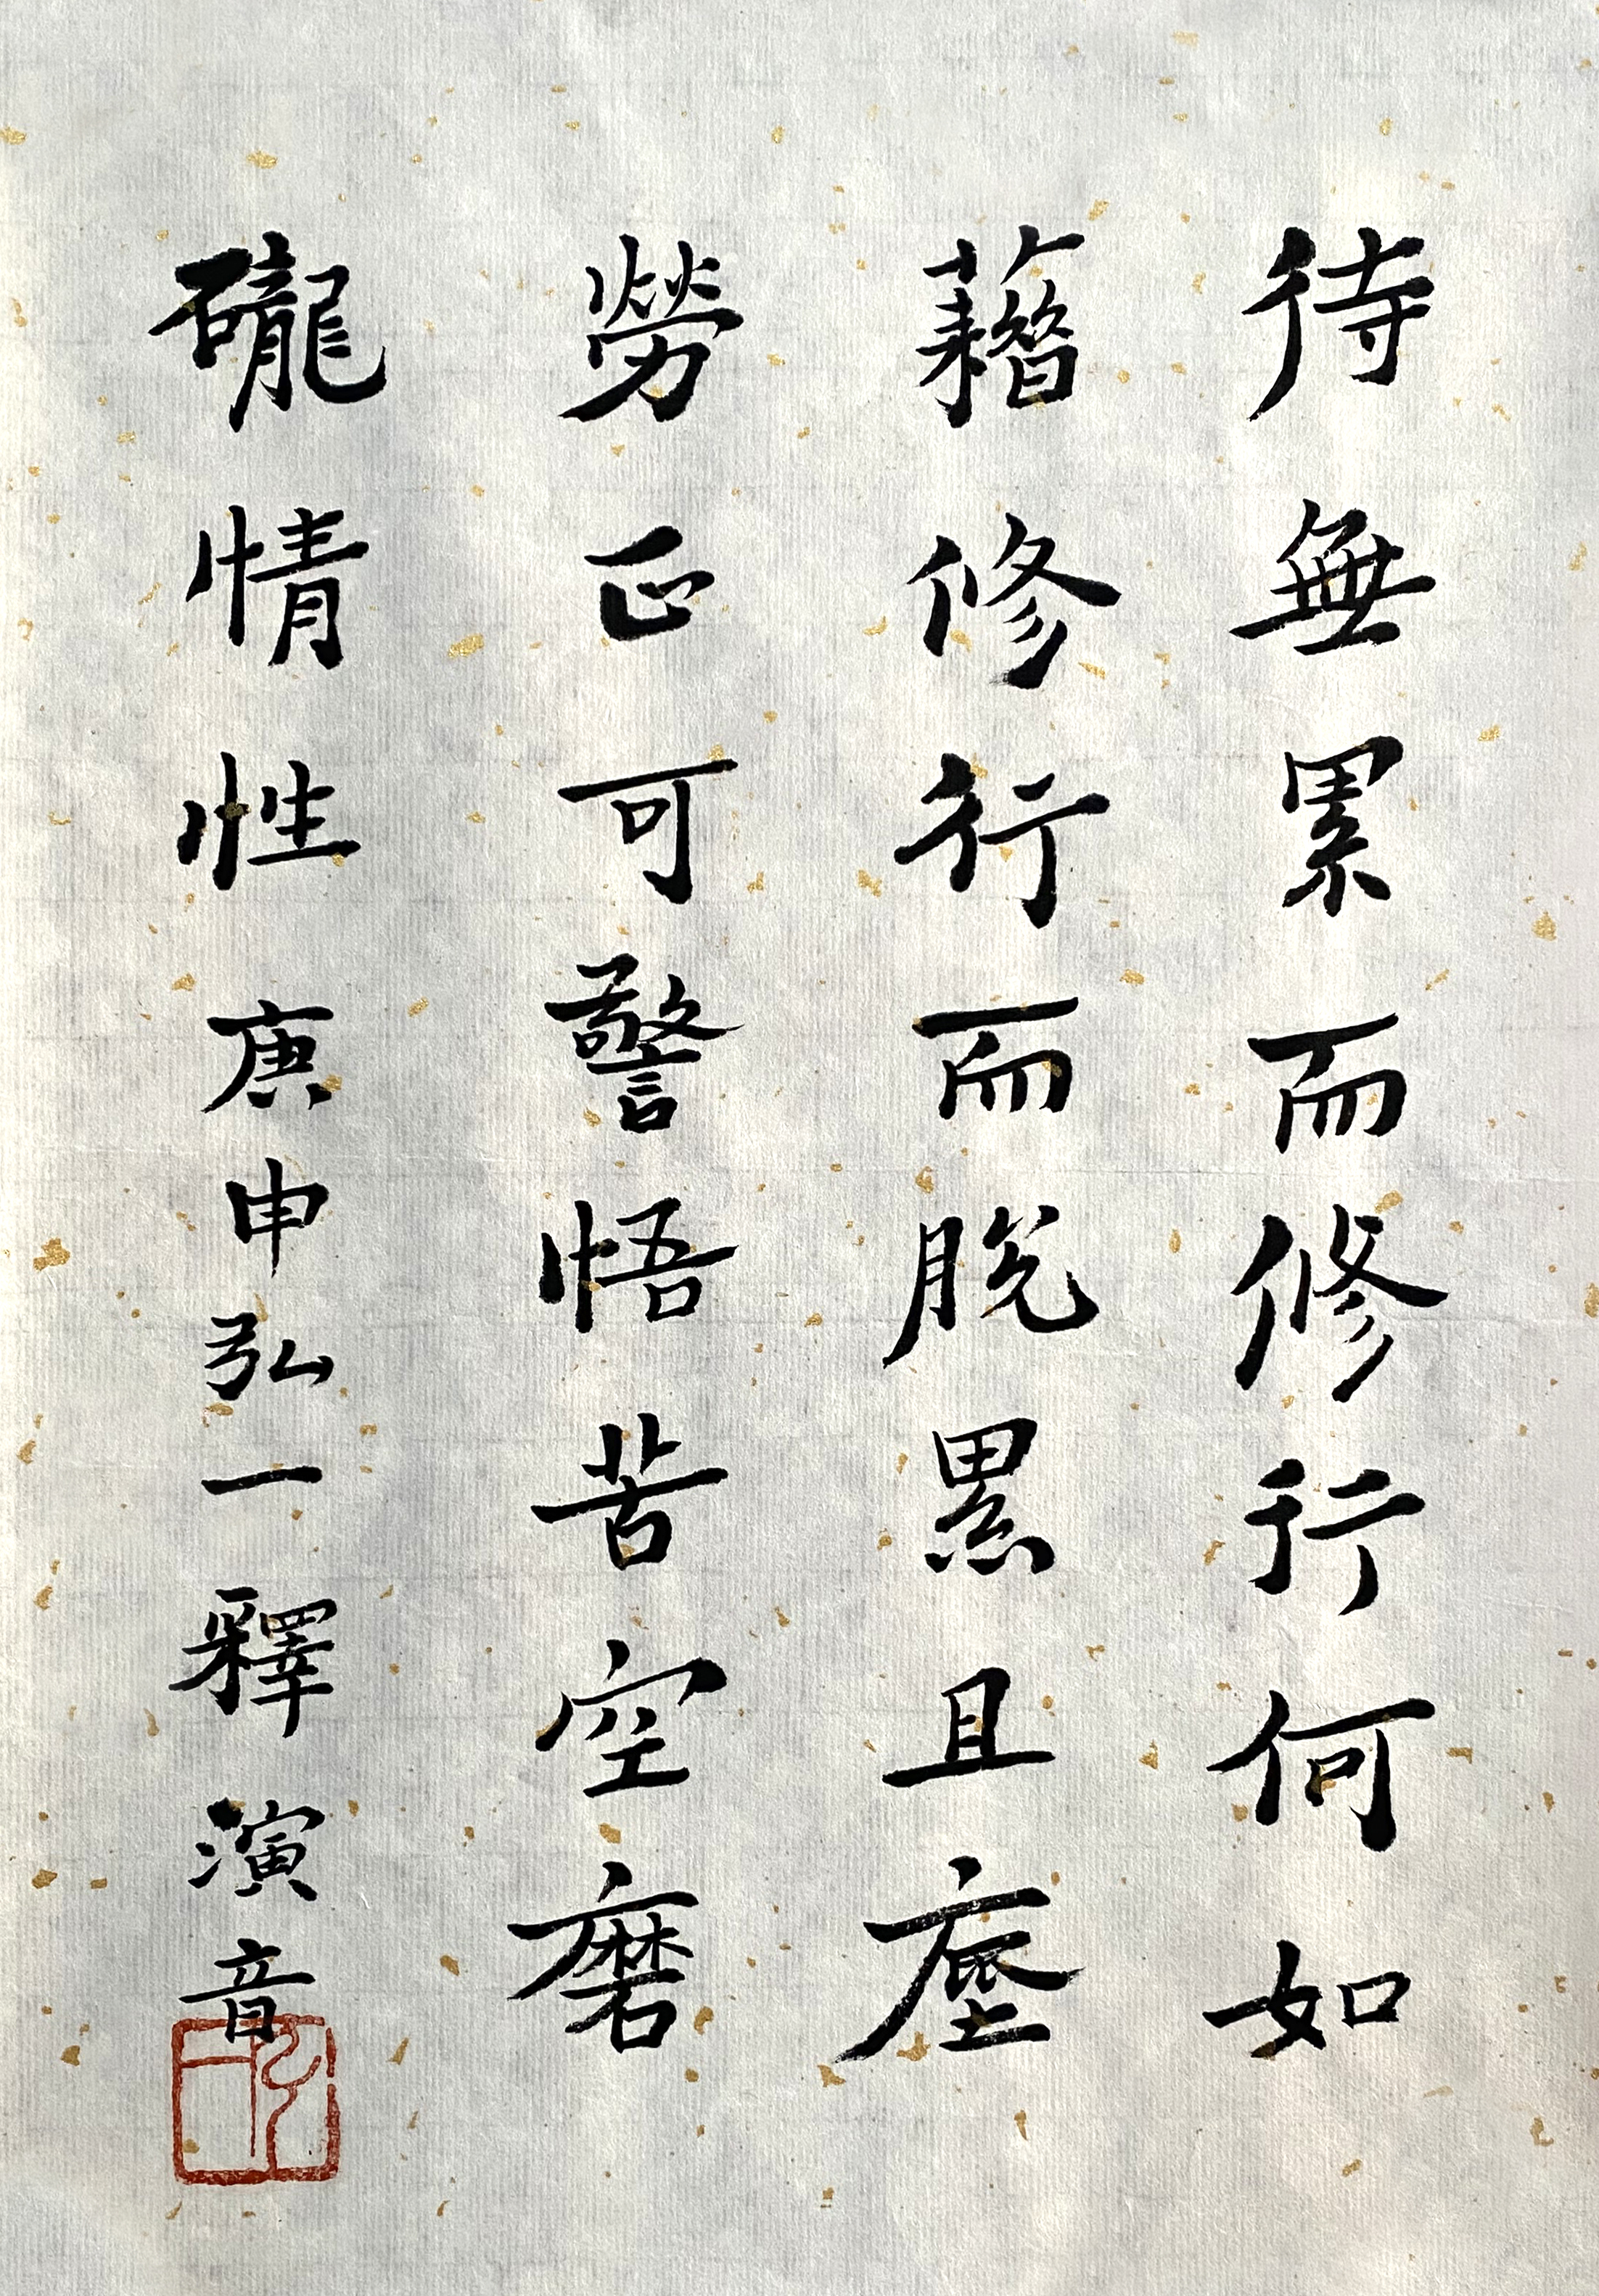 待無累而修行何如
藉修行而脫累且塵
勞正可警悟苦空磨
礲情性庚申弘一釋演音